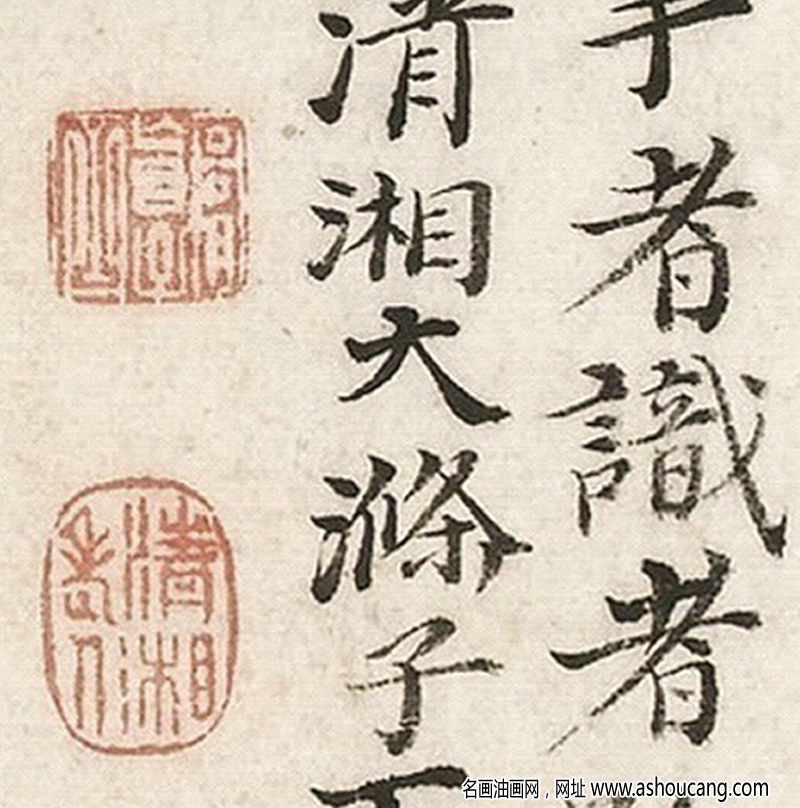 者識者
清湘大滌子
清湘老人
名画油画网，网址 www.ashoucang.com